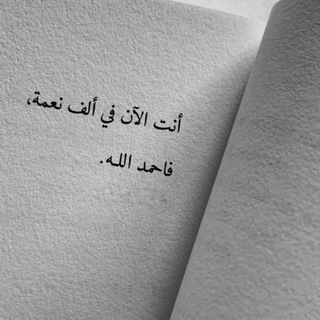 أنت الآن في ألف نعمة،
فاحمد الله.